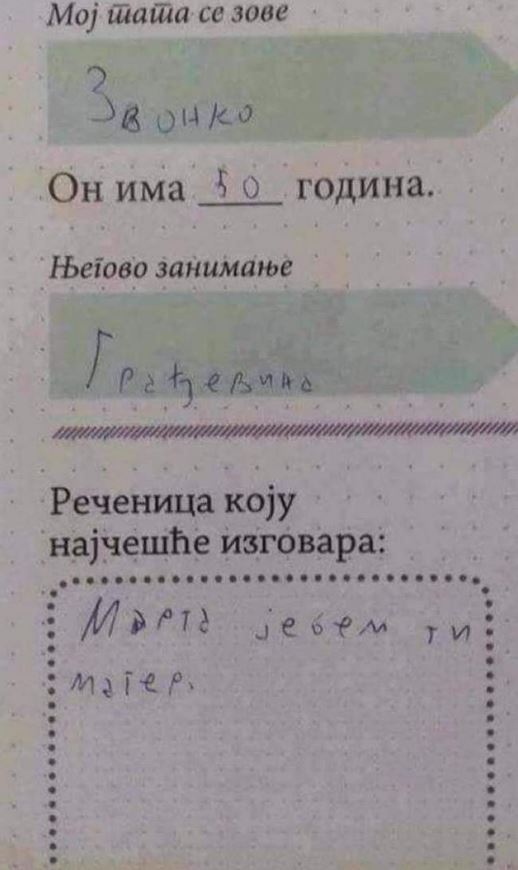 Мој тата се зове
Звонко
Он има 50 година.
Његово занимање
Грађевина
Реченица коју
најчешће изговара:
Марта јебем ти
матер.